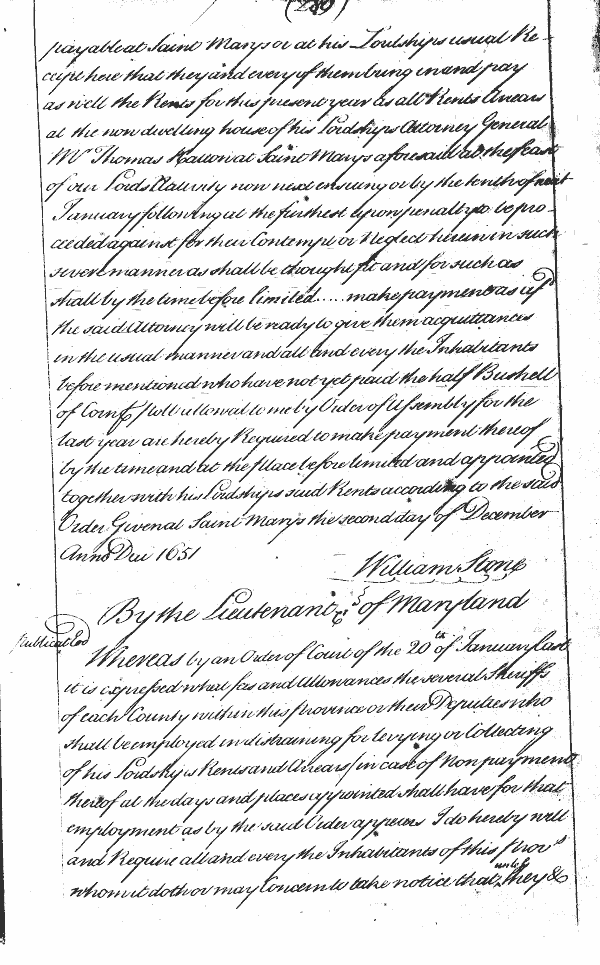 (289)
payable at Saint Marys or at his Lordships usual Re-
ceipt here that they and every of them bring in and pay
as well the Rents for this present year as all Rents Arrears
at the now dwelling house of his Lordships Attorney General
Mr Thomas Hatton at Saint Marys aforesaid at the feast
of our Lords Nativity now next ensuing or by the tenth of next
January following at the furthest upon penalty to be pro-
ceeded against for their Contempt or Neglect herein in such
severe manner as shall be thought fit and for such as
shall by the time before limited..... make payment as afd
the said Attorney will be ready to give them acquittances
in the usual manner and all and every the Inhabitants
before mentioned who have not yet paid the half Bushell
of Corn P poll allowed to me by Order of Assembly for the
last year are hereby Required to make payment thereof
by the time and at the place before limited and appointed
together with his Lordships said Rents according to the said
Order Given at Saint Marys the second day of December
Anno Dni 1651
William Stone
By the Lieutenant &c of Maryland
Publicat Ed
Whereas by an Order of Court of the 20th of January last
it is expressed what fees and Allowances the several Sheriffs
of each County within this Province or their Deputies who
shall be employed in distraining for levying or Collecting
of his Lordships Rents and Arrears/in case of Non payment
thereof at the days and places appointed shall have for that
employment as by the said Order appears I do hereby will
and Require all and every the Inhabitants of this Provs
whom it doth or may Concern to take notice that unless they &